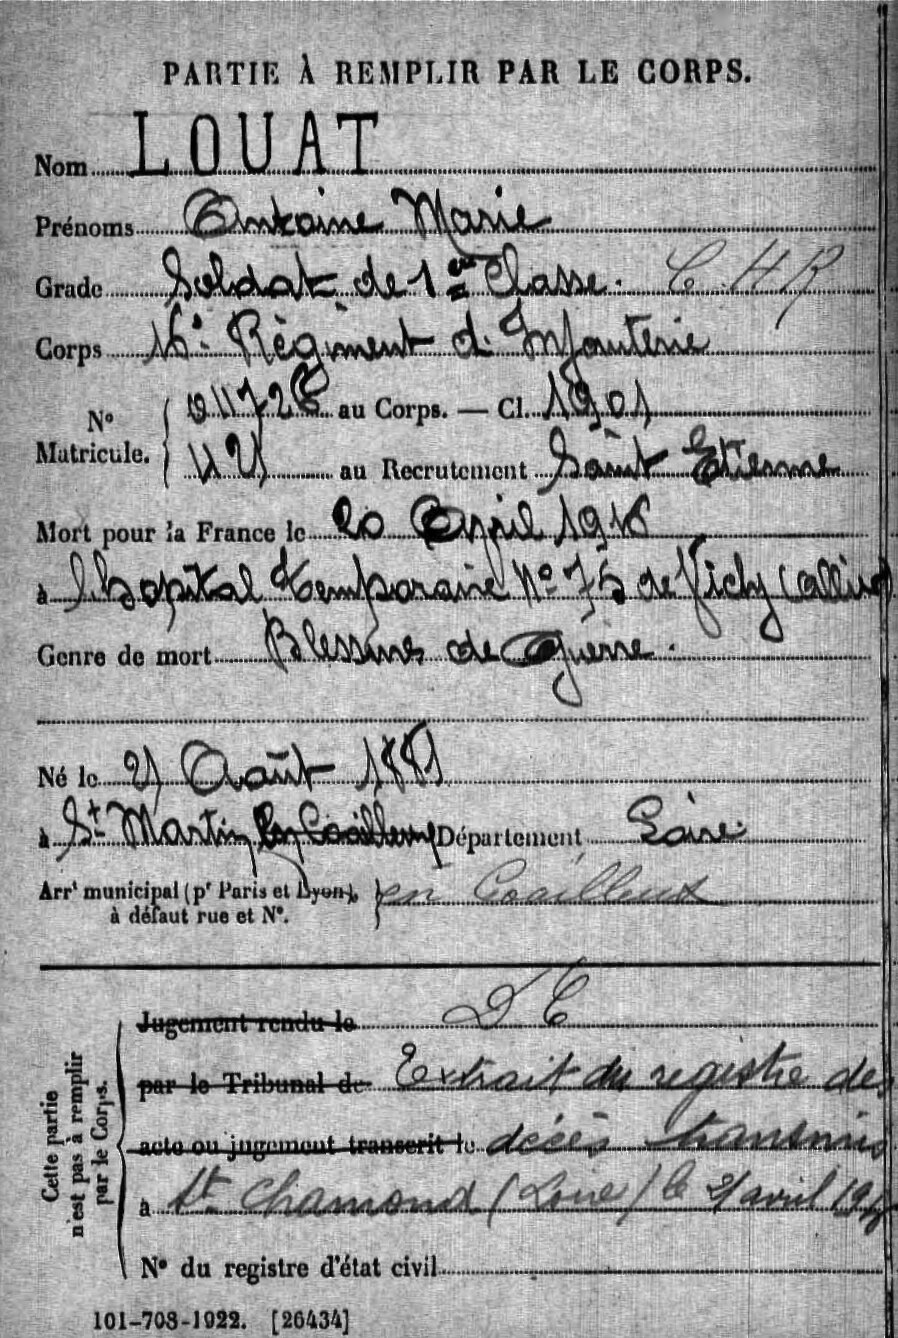 PARTIE À REMPLIR PAR LE CORPS.
Nom LOUAT
Prénoms Antoine Marie
Grade Soldat de 1ère Classe. C H R
Corps 16e Régiment d'Infanterie
N° Matricule. 01172 au Corps. — Cl. 1901
au Recrutement Saint Etienne
Mort pour la France le 20 Avril 1916
à l'hopital temporaire N° 75 de Vichy (Allier)
Genre de mort Blessures de Guerre.
Né le 21 Août 1881
à St Martin en Coailleux Département Loire.
Arrt municipal (pr Paris et Lyon), à défaut rue et N°. en Coailleux
Cette partie n'est pas à remplir par le Corps.
Jugement rendu le D C
par le Tribunal de Extrait du registre des
acte ou jugement transcrit le décès transmis
à St Chamond (Loire) le 21 avril
N° du registre d'état civil
101-708-1922. [26434]